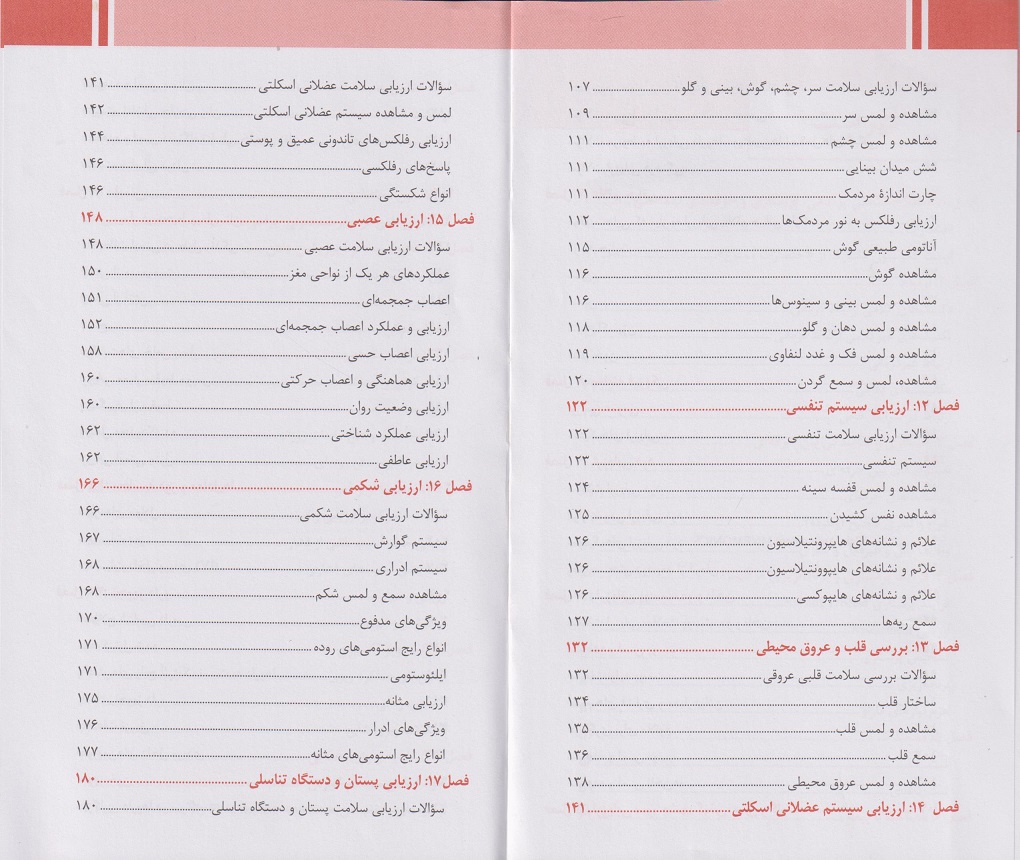 سؤالات ارزیابی سلامت سر، چشم، گوش، بینی و گلو ........ ۱۰۷
مشاهده و لمس سر ........ ۱۰۹
مشاهده و لمس چشم ........ ۱۱۱
شش میدان بینایی ........ ۱۱۱
چارت اندازۀ مردمک ........ ۱۱۱
ارزیابی رفلکس به نور مردمک‌ها ........ ۱۱۲
آناتومی طبیعی گوش ........ ۱۱۵
مشاهده گوش ........ ۱۱۶
مشاهده و لمس بینی و سینوس‌ها ........ ۱۱۶
مشاهده و لمس دهان و گلو ........ ۱۱۸
مشاهده و لمس فک و غدد لنفاوی ........ ۱۱۹
مشاهده، لمس و سمع گردن ........ ۱۲۰
فصل ۱۲: ارزیابی سیستم تنفسی ........ ۱۲۲
سؤالات ارزیابی سلامت تنفسی ........ ۱۲۲
سیستم تنفسی ........ ۱۲۳
مشاهده و لمس قفسه سینه ........ ۱۲۴
مشاهده نفس کشیدن ........ ۱۲۵
علائم و نشانه‌های هایپرونتیلاسیون ........ ۱۲۶
علائم و نشانه‌های هایپوونتیلاسیون ........ ۱۲۶
علائم و نشانه‌های هایپوکسی ........ ۱۲۶
سمع ریه‌ها ........ ۱۲۷
فصل ۱۳: بررسی قلب و عروق محیطی ........ ۱۳۲
سؤالات بررسی سلامت قلبی عروقی ........ ۱۳۲
ساختار قلب ........ ۱۳۴
مشاهده و لمس قلب ........ ۱۳۵
سمع قلب ........ ۱۳۶
مشاهده و لمس عروق محیطی ........ ۱۳۸
فصل ۱۴: ارزیابی سیستم عضلانی اسکلتی ........ ۱۴۱
سؤالات ارزیابی سلامت عضلانی اسکلتی ........ ۱۴۱
لمس و مشاهده سیستم عضلانی اسکلتی ........ ۱۴۲
ارزیابی رفلکس‌های تاندونی عمیق و پوستی ........ ۱۴۴
پاسخ‌های رفلکسی ........ ۱۴۶
انواع شکستگی ........ ۱۴۶
فصل ۱۵: ارزیابی عصبی ........ ۱۴۸
سؤالات ارزیابی سلامت عصبی ........ ۱۴۸
عملکردهای هر یک از نواحی مغز ........ ۱۵۰
اعصاب جمجمه‌ای ........ ۱۵۱
ارزیابی و عملکرد اعصاب جمجمه‌ای ........ ۱۵۲
ارزیابی اعصاب حسی ........ ۱۵۸
ارزیابی هماهنگی و اعصاب حرکتی ........ ۱۶۰
ارزیابی وضعیت روان ........ ۱۶۰
ارزیابی عملکرد شناختی ........ ۱۶۲
ارزیابی عاطفی ........ ۱۶۲
فصل ۱۶: ارزیابی شکمی ........ ۱۶۶
سؤالات ارزیابی سلامت شکمی ........ ۱۶۶
سیستم گوارش ........ ۱۶۷
سیستم ادراری ........ ۱۶۸
مشاهده سمع و لمس شکم ........ ۱۶۸
ویژگی‌های مدفوع ........ ۱۷۰
انواع رایج استومی‌های روده ........ ۱۷۱
ایلئوستومی ........ ۱۷۱
ارزیابی مثانه ........ ۱۷۵
ویژگی‌های ادرار ........ ۱۷۶
انواع رایج استومی‌های مثانه ........ ۱۷۷
فصل۱۷: ارزیابی پستان و دستگاه تناسلی ........ ۱۸۰
سؤالات ارزیابی سلامت پستان و دستگاه تناسلی ........ ۱۸۰